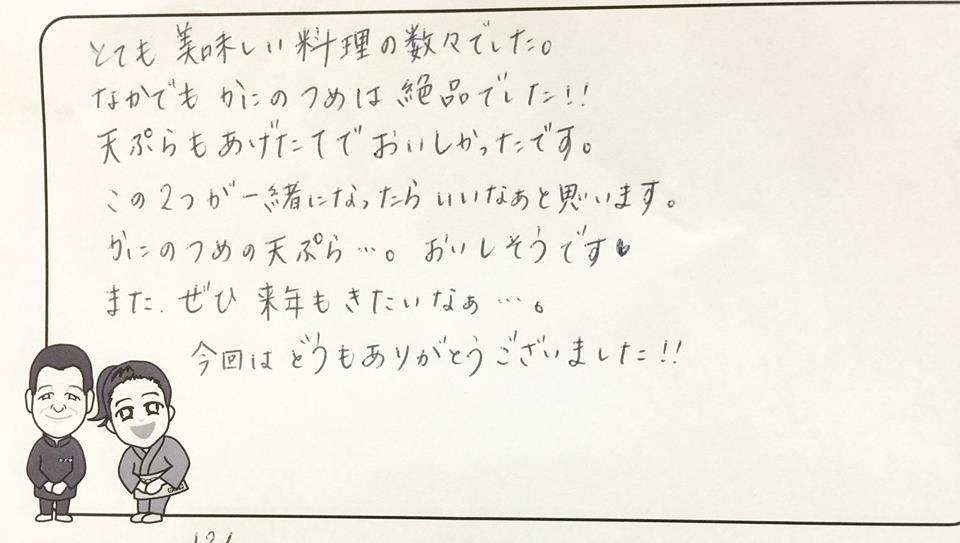 とても 美味しい 料理の数々でした。
なかでも かにのつめは 絶品でした!!
天ぷらもあげたてで おいしかったです。
この2つが一緒になったら いいなぁと思います。
かにのつめの天ぷら…。 おいしそうです♥
また、ぜひ 来年も きたいなぁ…。
今回は どうもありがとうございました!!